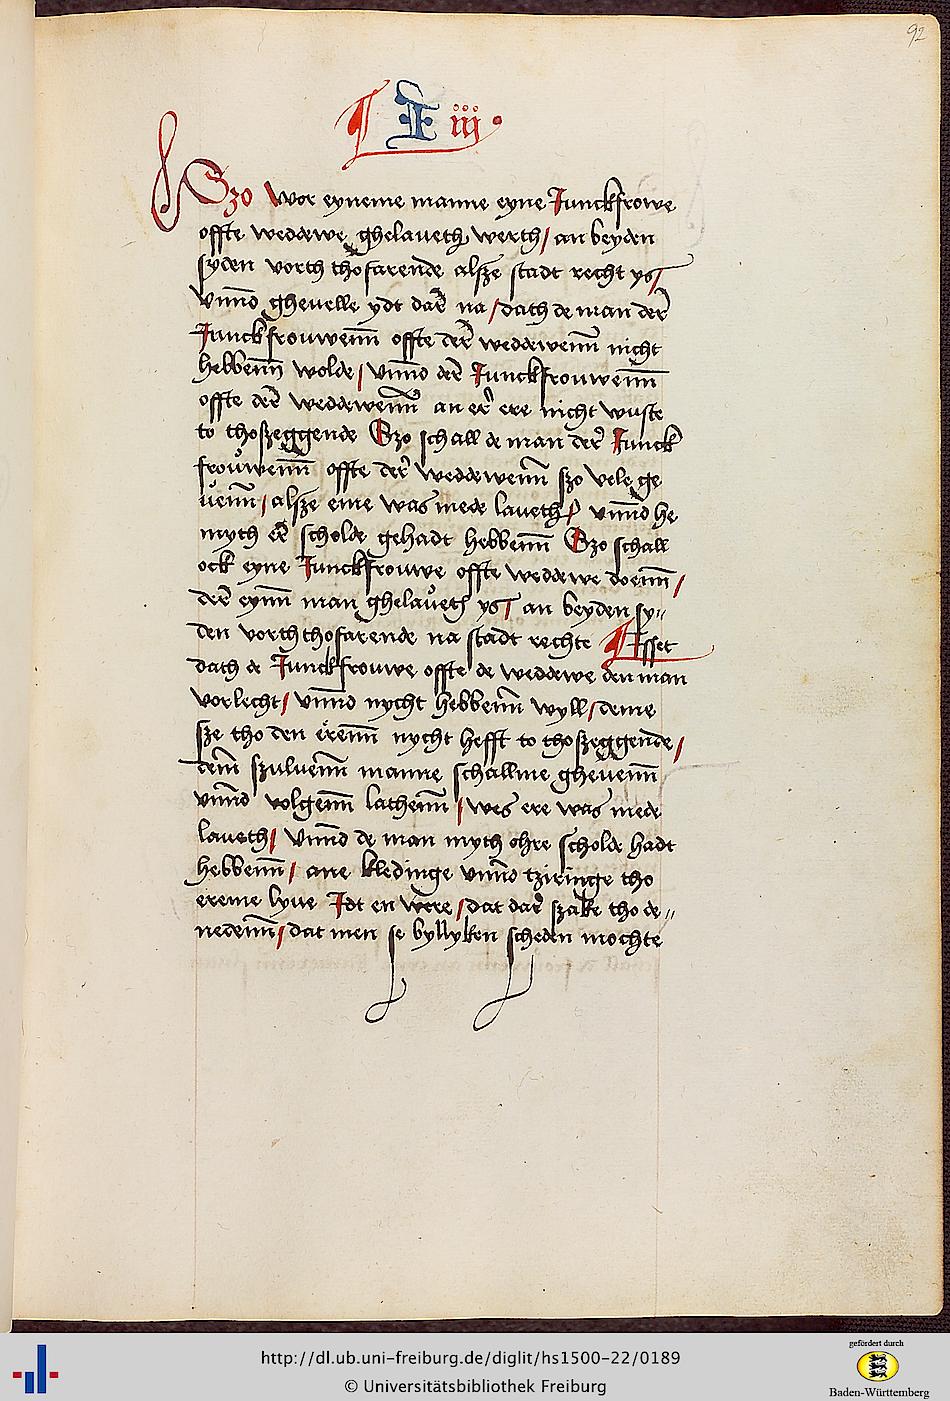 92
¶ F iij.
Szo wor eyneme manne eyne Junckfrowe
offte wedewe ghelaueth werth / an beyden
syden vorth thofarende alsze stadt recht ys /
Vnnd gheuelle ydt dar na / dath de man der
Junckfrouwenn offte der wedewenn nicht
hebbenn wolde / Vnnd der Junckfrouwenn
offte der wedewenn an er ere nicht wuste
to thoszeggende Szo schall de man der Junck
frouwenn offte der wedewenn szo vele ge
uenn / alsze eme was mede laueth / vnnd he
myth er scholde gehadt hebbenn Szo schall
ock eyne Junckfrouwe offte wedewe doenn /
der eynn man ghelaueth ys / an beyden sy„
den vorththofarende na stadt rechte Isset
dath de Junckfrouwe offte de wedewe den man
vorlecht / vnnd nycht hebbenn wyll / deme
sze tho den erenn nycht hefft to thoszeggende /
dem szuluenn manne schallme gheuenn
vnnd volgenn lathenn / wes ere was mede
laueth / Vnnd de man myth ohre scholde hadt
hebbenn / ane kledinge vnnd tziringe tho
ereme lyue Idt en were / dat dar szake tho de„
nedenn / dat men se byllyken scheden mochte
http://dl.ub.uni-freiburg.de/diglit/hs1500-22/0189
© Universitätsbibliothek Freiburg
gefördert durch
Baden-Württemberg